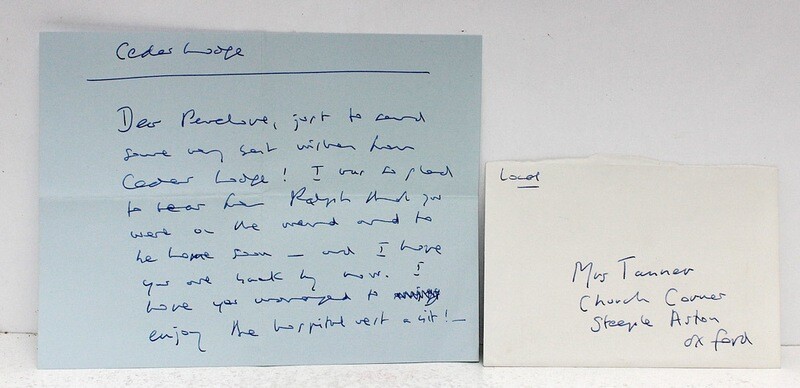 Cedar Lodge
Dear Penelope, just to send
some very best wishes from
Cedar Lodge! I was so glad
to hear from Ralph that you
were on the mend and to
be home soon — and I hope
you are back by now. I
hope you managed to
enjoy the hospital rest a bit! —
Local
Mrs Tanner
Church Corner
Steeple Aston
Oxford